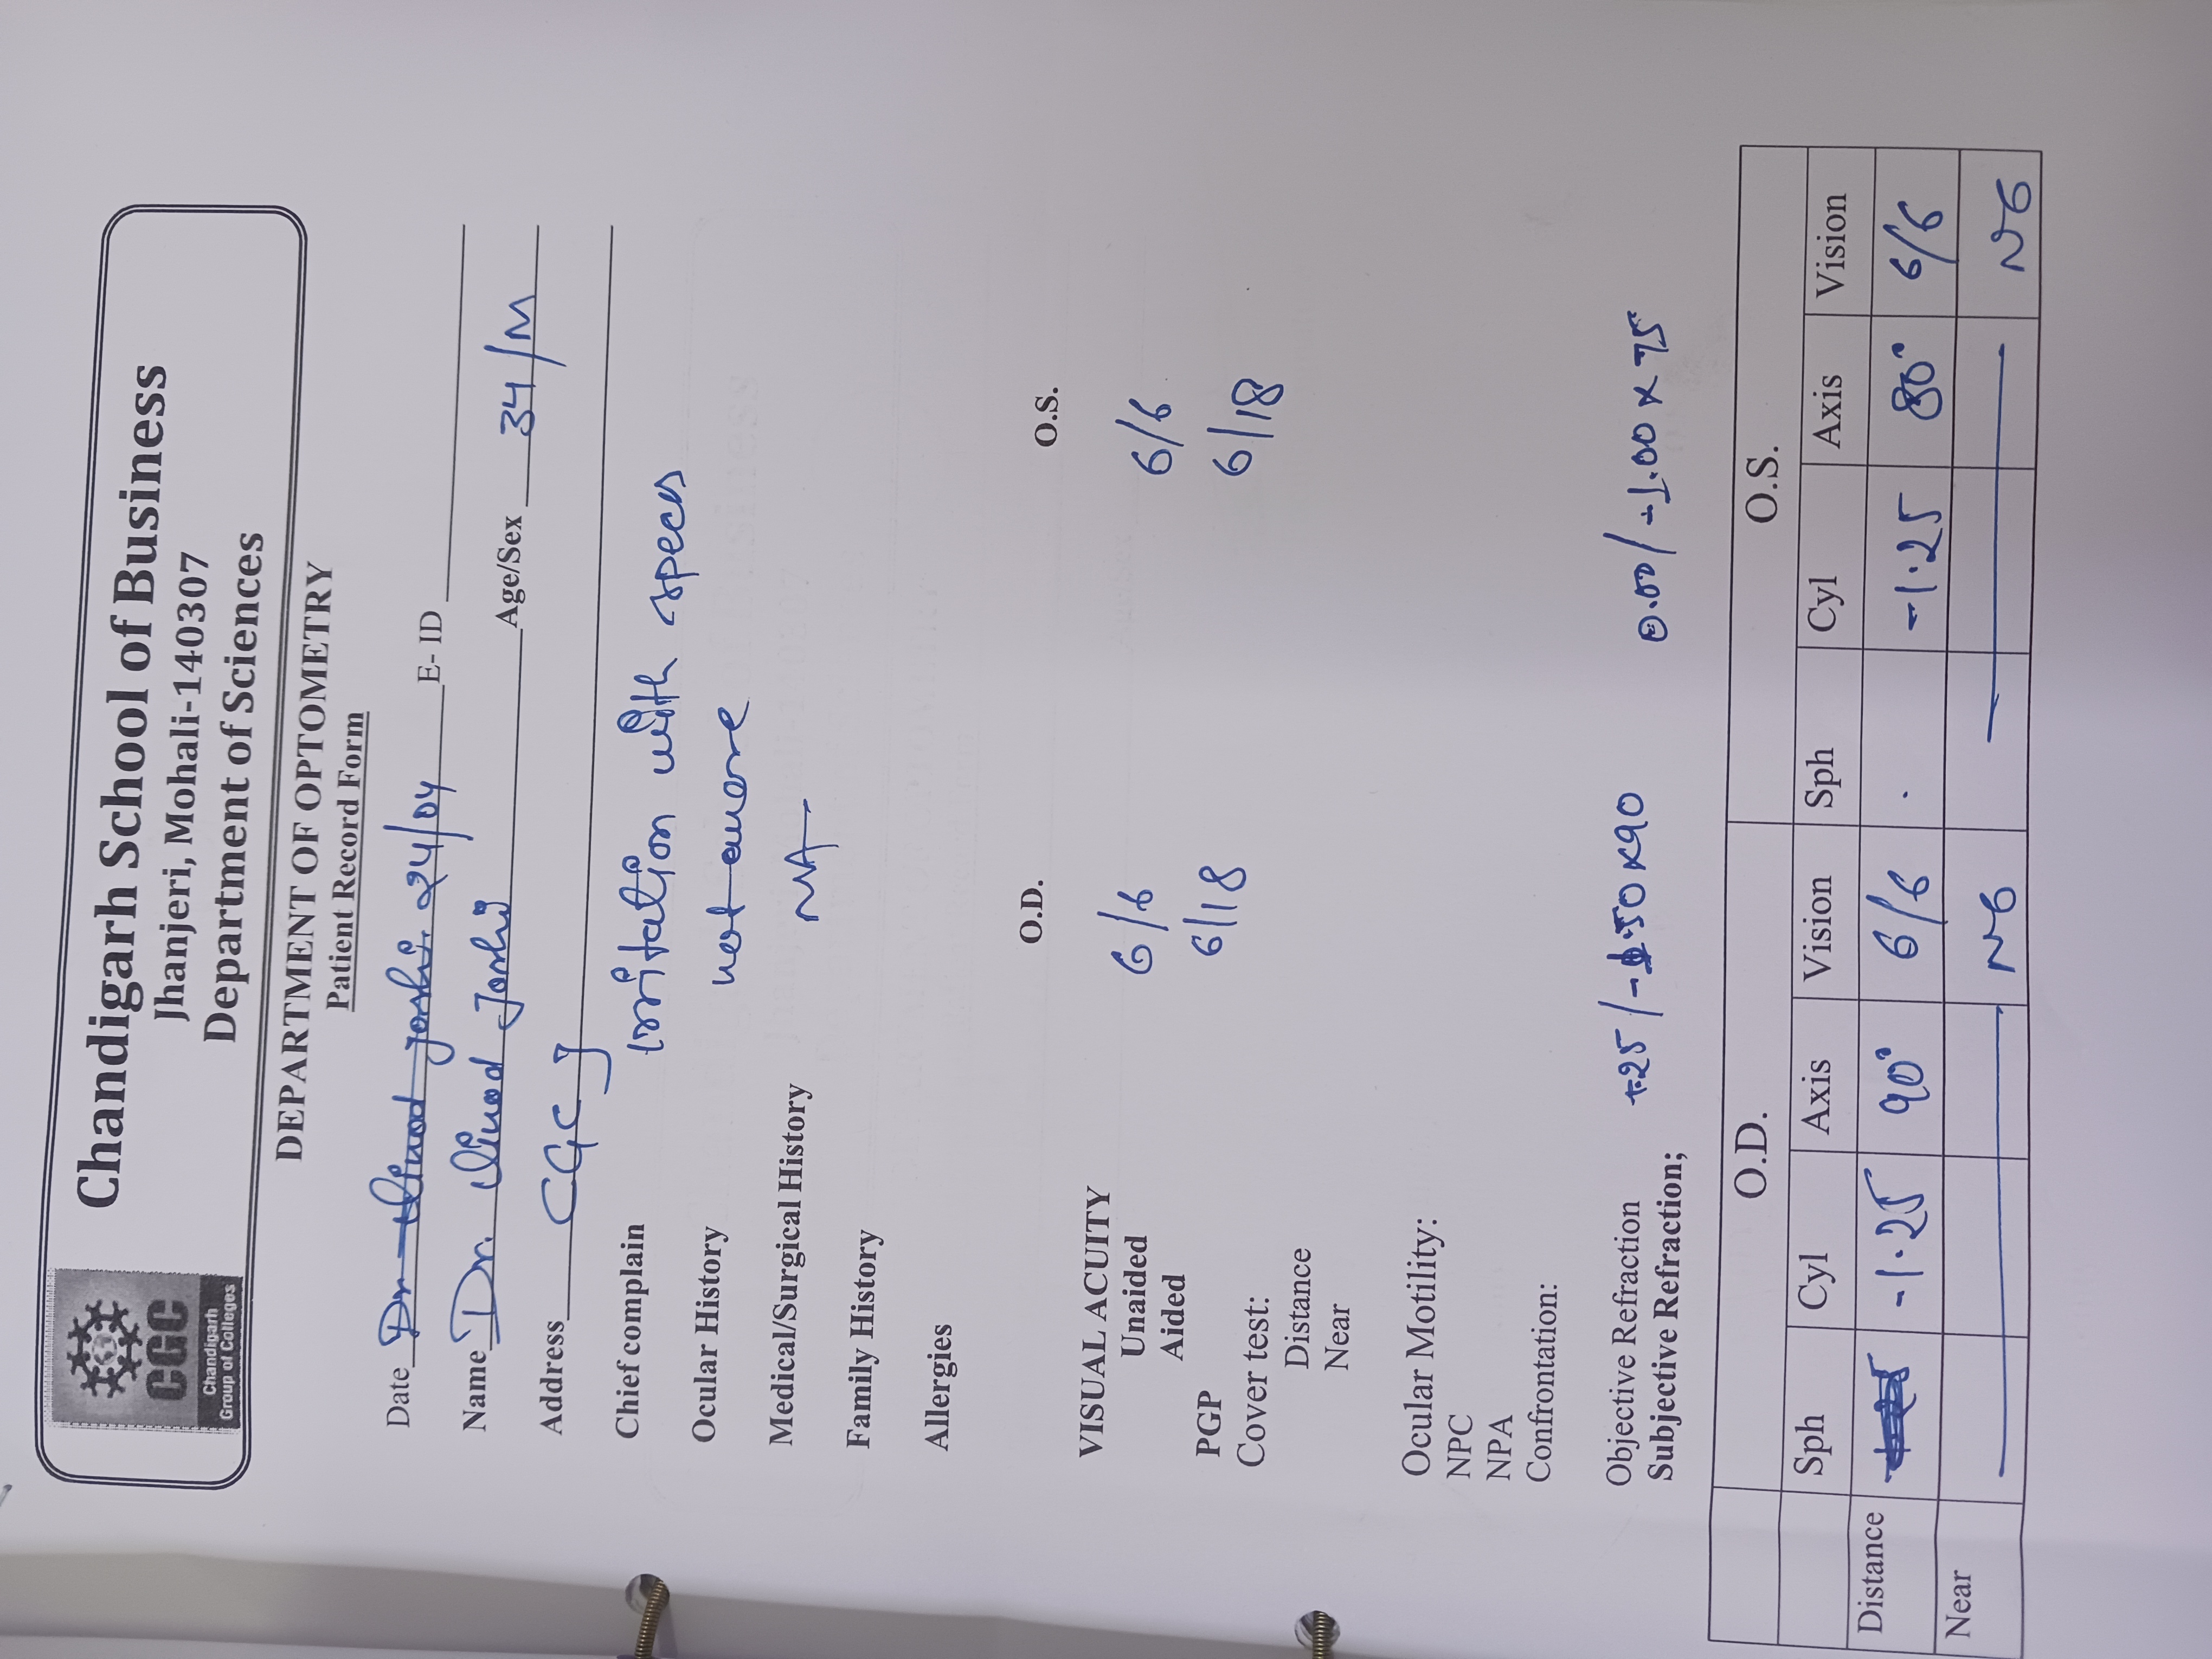 CGC
Chandigarh
Group of Colleges
Chandigarh School of Business
Jhanjeri, Mohali-140307
Department of Sciences
DEPARTMENT OF OPTOMETRY
Patient Record Form
Date Dr Vinod Joshi. 24/04 E- ID
Name Dr. Vinod Joshi Age/Sex 34/M
Address CGC J
Chief complain irritation with specs
Ocular History not aware
Medical/Surgical History NA
Family History
Allergies
O.D. O.S.
VISUAL ACUITY
Unaided 6/6 6/6
Aided
PGP 6/18 6/18
Cover test:
Distance
Near
Ocular Motility:
NPC
NPA
Confrontation:
Objective Refraction +.25/-1.50 x 90 0.00/-1.00 x 75
Subjective Refraction;
O.D. O.S.
Sph Cyl Axis Vision Sph Cyl Axis Vision
Distance -1.25 90° 6/6 -1.25 80° 6/6
Near N6 N6